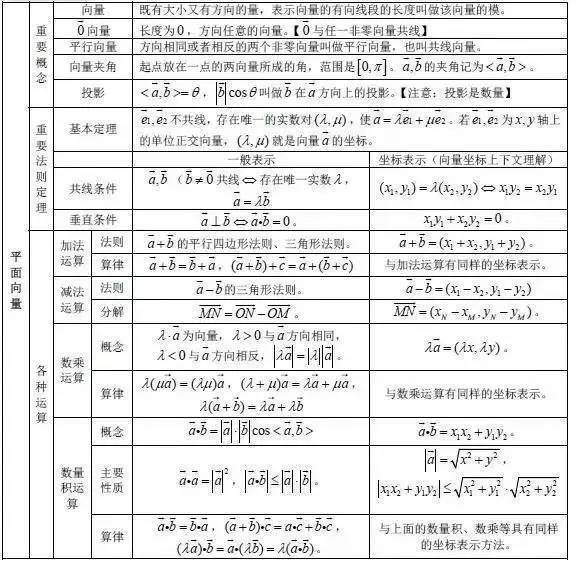 平面向量
重要概念
向量 既有大小又有方向的量,表示向量的有向线段的长度叫做该向量的模。
0⃗向量 长度为0,方向任意的向量。【0⃗与任一非零向量共线】
平行向量 方向相同或者相反的两个非零向量叫做平行向量,也叫共线向量。
向量夹角 起点放在一点的两向量所成的角,范围是[0,π]。a⃗,b⃗的夹角记为<a⃗,b⃗>。
投影 <a⃗,b⃗>=θ,|b⃗|cosθ叫做b⃗在a⃗方向上的投影。【注意:投影是数量】
重要法则定理
基本定理 e⃗₁,e⃗₂不共线,存在唯一的实数对(λ,μ),使a⃗=λe⃗₁+μe⃗₂。若e⃗₁,e⃗₂为x,y轴上
的单位正交向量,(λ,μ)就是向量a⃗的坐标。
一般表示 坐标表示(向量坐标上下文理解)
共线条件 a⃗,b⃗(b⃗≠0⃗共线⇔存在唯一实数λ,
a⃗=λb⃗
(x₁,y₁)=λ(x₂,y₂)⇔x₁y₂=x₂y₁
垂直条件 a⃗⊥b⃗⇔a⃗•b⃗=0。 x₁y₁+x₂y₂=0。
各种运算
加法运算
法则 a⃗+b⃗的平行四边形法则、三角形法则。 a⃗+b⃗=(x₁+x₂,y₁+y₂)。
算律 a⃗+b⃗=b⃗+a⃗,(a⃗+b⃗)+c⃗=a⃗+(b⃗+c⃗) 与加法运算有同样的坐标表示。
减法运算
法则 a⃗−b⃗的三角形法则。 a⃗−b⃗=(x₁−x₂,y₁−y₂)
分解 MN⃗=ON⃗−OM⃗。 MN⃗=(x_N−x_M,y_N−y_M)。
数乘运算
概念 λ·a⃗为向量,λ>0与a⃗方向相同,
λ<0与a⃗方向相反,|λa⃗|=|λ||a⃗|。
λa⃗=(λx,λy)。
算律 λ(μa⃗)=(λμ)a⃗,(λ+μ)a⃗=λa⃗+μa⃗,
λ(a⃗+b⃗)=λa⃗+λb⃗
与数乘运算有同样的坐标表示。
数量积运算
概念 a⃗•b⃗=|a⃗|·|b⃗|cos<a⃗,b⃗> a⃗•b⃗=x₁x₂+y₁y₂。
主要性质 a⃗•a⃗=|a⃗|²,|a⃗•b⃗|≤|a⃗|·|b⃗|。
|a⃗|=√(x²+y²),
|x₁x₂+y₁y₂|≤√(x₁²+y₁²)·√(x₂²+y₂²)
算律 a⃗•b⃗=b⃗•a⃗,(a⃗+b⃗)•c⃗=a⃗•c⃗+b⃗•c⃗,
(λa⃗)•b⃗=a⃗•(λb⃗)=λ(a⃗•b⃗)。
与上面的数量积、数乘等具有同样
的坐标表示方法。